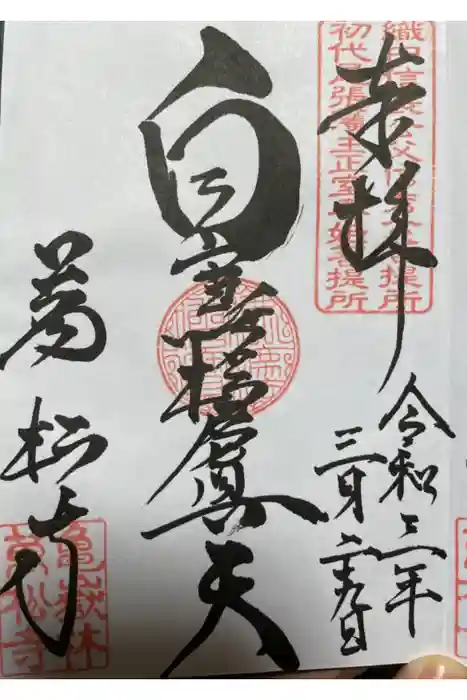 奉拝
織田信長公父信秀公菩提所
初代尾張藩主正室春姫菩提所
令和三年
三月二十九日
白雪吒枳尼眞天
萬松寺
亀嶽林
萬松寺